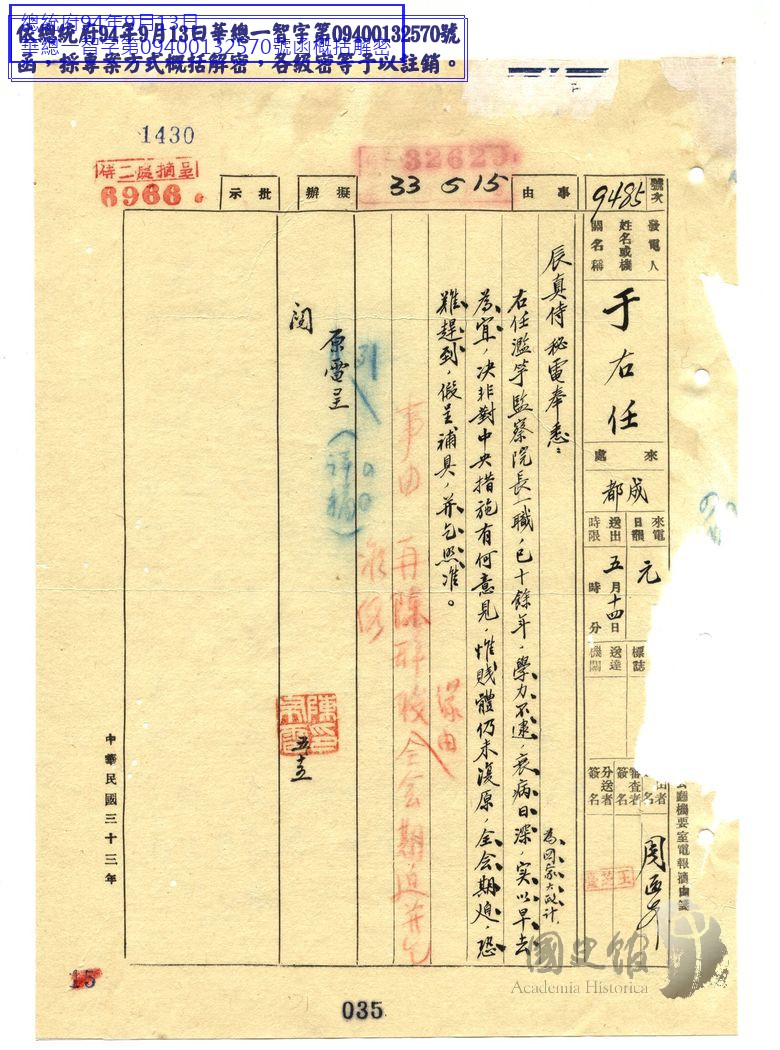 總統府94年9月13日
華總一智字第09400132570號函概括解密
依總統府94年9月13日華總一智字第09400132570號
函，採專案方式概括解密，各級密等予以註銷。
1430
呈摘處二侍
6966
32629
33 5 15
號次
9485
發電人
姓名或機
關名稱
于右任
來處
成都
來電
日韻
元
送出
時限
五月十四日
時 分
標誌
送達
機關
審查者
簽名
分送者
簽名
公廳機要室電報摘由箋
事由
擬辦
批示
辰真侍秘電奉悉：
右任濫竽監察院長一職，已十餘年，學力不逮，衰病日深，實以早去
為國家大政計，
為宜，決非對中央措施有何意見，惟賤體仍未復原，全會期迫，恐
難趕到，假呈補具，并乞照准。
事由 再陳辭職
全會期迫并乞
原電呈
閱
中華民國三十三年
15
035
國史館
Academia Historica